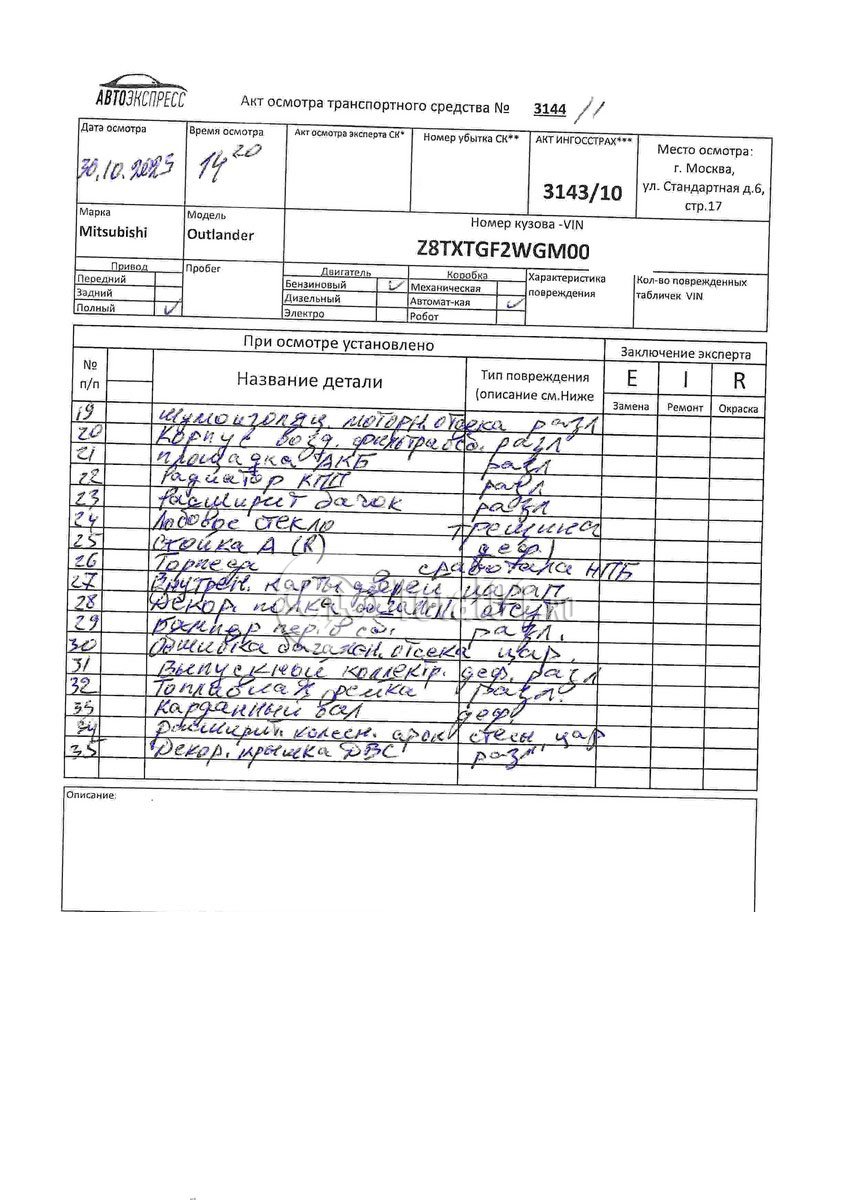 АВТОЭКСПРЕСС
Акт осмотра транспортного средства № 3144 /1
Дата осмотра
30.10.2023
Время осмотра
14 20
Акт осмотра эксперта СК*
Номер убытка СК**
АКТ ИНГОССТРАХ***
3143/10
Место осмотра:
г. Москва,
ул. Стандартная д.6,
стр.17
Марка
Mitsubishi
Модель
Outlander
Номер кузова -VIN
Z8TXTGF2WGM00
Привод
Передний
Задний
Полный
Пробег
Двигатель
Бензиновый
Дизельный
Электро
Коробка
Механическая
Автомат-кая
Робот
Характеристика
повреждения
Кол-во поврежденных
табличек VIN
При осмотре установлено
Заключение эксперта
№
п/п
Название детали
Тип повреждения
(описание см.Ниже
E I R
Замена Ремонт Окраска
19 шумоизоляц. моторн. отсека разл
20 Корпус возд. фильтра разл
21 площадка АКБ разл
22 Радиатор КПП разл
23 Расширит бачок разл
24 Лобовое стекло трещина
25 стойка А (R) деф
26 Торпедо сработала НПБ
27 Внутрен. карты дверей царап
28 Декор. полка багажн. отсут
29 Бампер пер. в сб. разл.
30 Обшивка багажн. отсека цар.
31 Выпускный коллектр. деф. разл
32 Топливная рейка разл.
33 Карданный вал деф
34 расширит. колесн. арок стесы, цар
35 Декор. крышка ДВС разл
Описание: